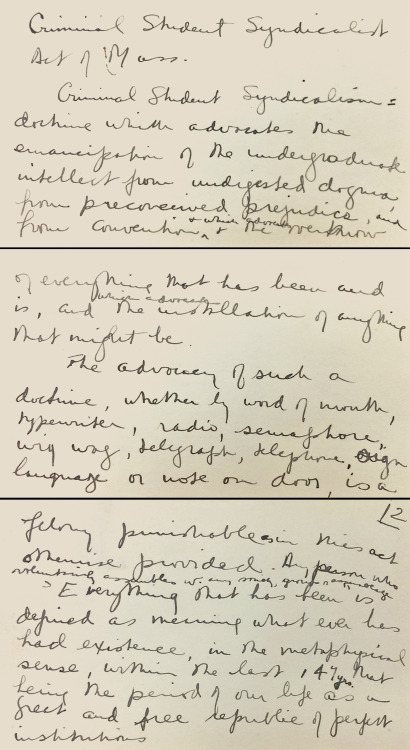 Criminal Student Syndicalist
Act of Mass.
Criminal Student Syndicalism =
doctrine which advocates the
emancipation of the undergraduate
intellect from undigested dogma
from preconceived prejudice, and
from convention, + which advocates the overthrow
of everything that has been and
is, and which advocates the installation of anything
that might be.
The advocacy of such a
doctrine, whether by word of mouth,
typewriter, radio, semaphore,
wig wag, telegraph, telephone, sign
language or nose on door, is a
2
felony punishable as in this act
otherwise provided. Any person who
voluntarily assembles w. any society, group,
"Everything that has been is"
defined as meaning what ever has
had existence, in the metaphysical
sense, within the last 147 yrs. that
being the period of our life as a
great and free republic of perfect
institutions